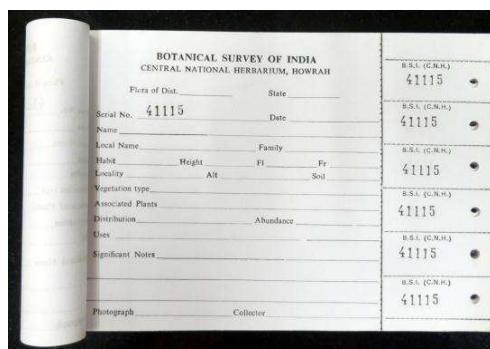 BOTANICAL SURVEY OF INDIA
CENTRAL NATIONAL HERBARIUM, HOWRAH
Flora of Dist. State
Serial No. 41115 Date
Name
Local Name Family
Habit Height Fl Fr
Locality Alt Soil
Vegetation type
Associated Plants
Distribution Abundance
Uses
Significant Notes
Photograph Collector
B.S.I. (C.N.H.)
41115
B.S.I. (C.N.H.)
41115
B.S.I. (C.N.H.)
41115
B.S.I. (C.N.H.)
41115
B.S.I. (C.N.H.)
41115
B.S.I. (C.N.H.)
41115